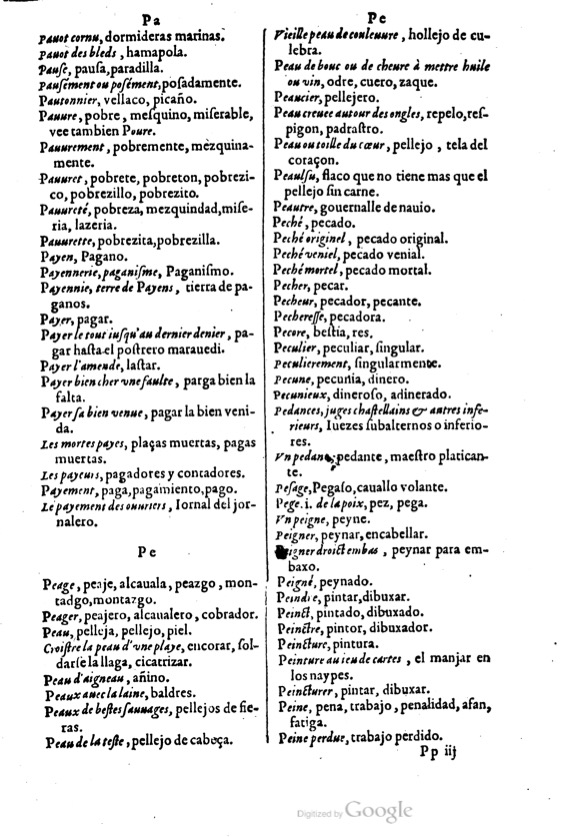 Pa
Pauot cornu, dormideras marinas.
Pauot des bleds, hamapola.
Pauſe, pauſa, paradilla.
Pauſément ou poſément, poſadamente.
Pautonnier, vellaco, picaño.
Pauure, pobre, meſquino, miſerable,
vee tambien Poure.
Pauurement, pobremente, mezquina-
mente.
Pauuret, pobrete, pobreton, pobrezi-
co, pobrezillo, pobrezito.
Pauureté, pobreza, mezquindad, miſe-
ria, lazeria.
Pauurette, pobrezita, pobrezilla.
Payen, Pagano.
Payennerie, paganiſme, Paganiſmo.
Payennie, terre de Payens, tierra de pa-
ganos.
Payer, pagar.
Payer le tout iuſqu'au dernier denier, pa-
gar haſta el poſtrero marauedi.
Payer l'amende, laſtar.
Payer bien cher vne faulte, parga bien la
falta.
Payer ſa bien venue, pagar la bien veni-
da.
Les mortes payes, plaças muertas, pagas
muertas.
Les payeurs, pagadores y contadores.
Payement, paga, pagamiento, pago.
Le payement des ouuriers, Iornal del jor-
nalero.
Pe
Peage, peaje, alcauala, peazgo, mon-
tadgo, montazgo.
Peager, peajero, alcaualero, cobrador.
Peau, pelleja, pellejo, piel.
Croiſtre la peau d'vne playe, encorar, ſol-
darſe la llaga, cicatrizar.
Peau d'aigneau, añino.
Peaux auec la laine, baldres.
Peaux de beſtes ſauuages, pellejos de fie-
ras.
Peau de la teſte, pellejo de cabeça.
Pe
Vieille peau de couleuure, hollejo de cu-
lebra.
Peau de bouc ou de cheure à mettre huile
ou vin, odre, cuero, zaque.
Peaucier, pellejero.
Peau creuee autour des ongles, repelo, reſ-
pigon, padraſtro.
Peau ou toille du cœur, pellejo, tela del
coraçon.
Peaulſu, flaco que no tiene mas que el
pellejo ſin carne.
Peautre, gouernalle de nauio.
Peché, pecado.
Peché originel, pecado original.
Peché veniel, pecado venial.
Peché mortel, pecado mortal.
Pecher, pecar.
Pecheur, pecador, pecante.
Pechereſſe, pecadora.
Pecore, beſtia, res.
Peculier, peculiar, ſingular.
Peculierement, ſingularmente.
Pecune, pecunia, dinero.
Pecunieux, dineroſo, adinerado.
Pedances, juges chaſtellains & autres infe-
rieurs, Iuezes ſubalternos o inferio-
res.
Vn pedant, pedante, maeſtro platican-
te.
Peſage, Pegaſo, cauallo volante.
Pege. i. de la poix, pez, pega.
Vn peigne, peyne.
Peigner, peynar, encabellar.
Peigner droict embas, peynar para em-
baxo.
Peigné, peynado.
Peindre, pintar, dibuxar.
Peinct, pintado, dibuxado.
Peinctre, pintor, dibuxador.
Peincture, pintura.
Peinture au ieu de cartes, el manjar en
los naypes.
Peincturer, pintar, dibuxar.
Peine, pena, trabajo, penalidad, afan,
fatiga.
Peine perdue, trabajo perdido.
Pp iij
Digitized by Google